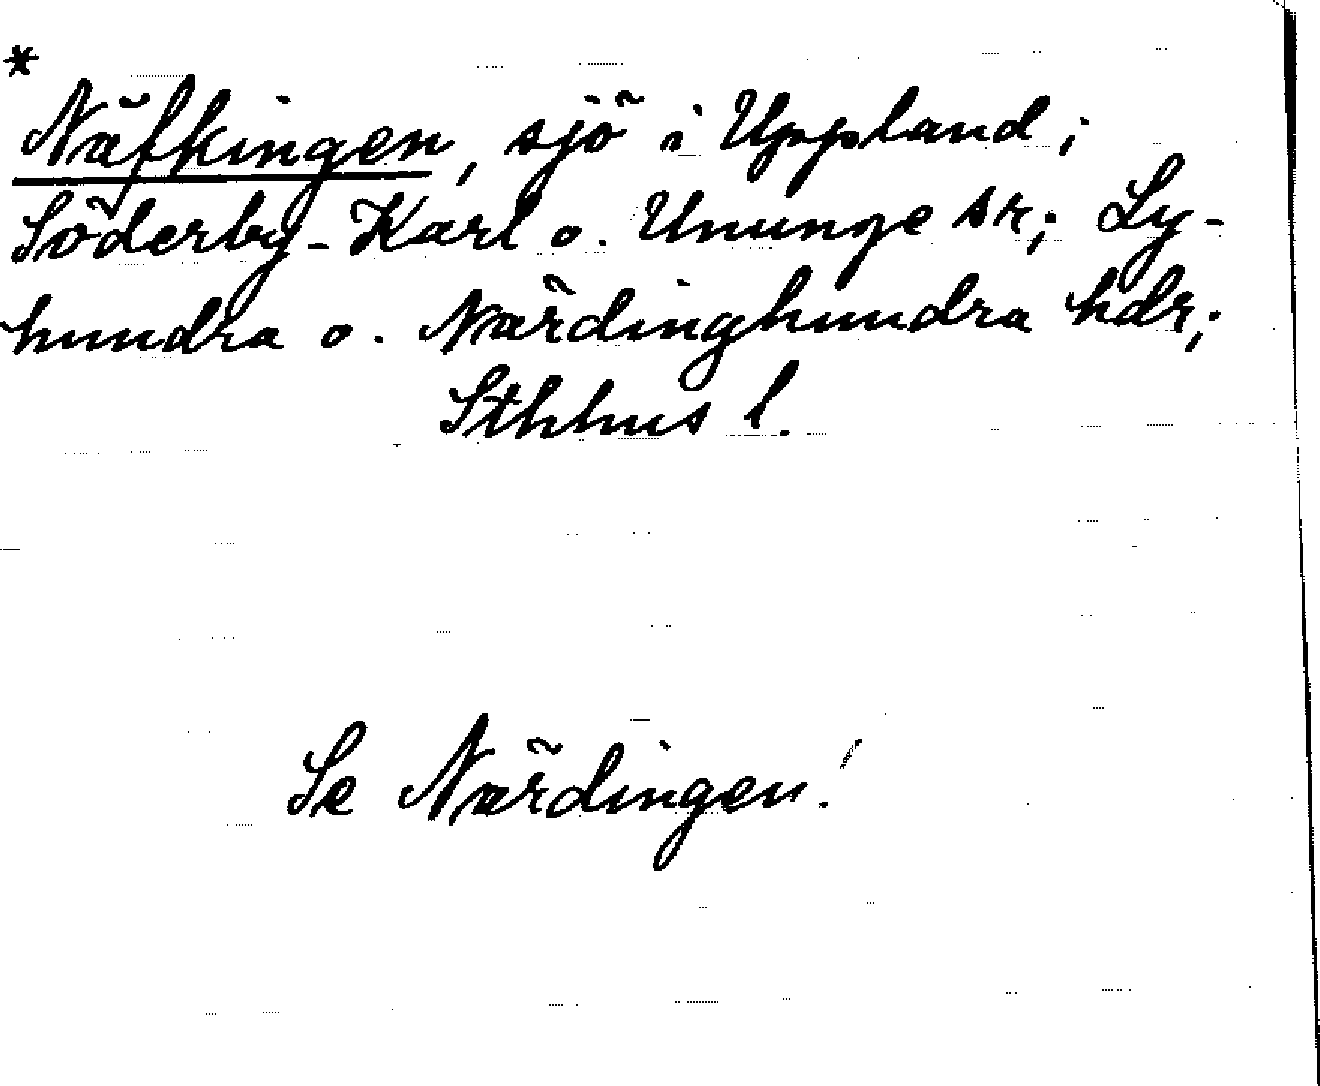 *
Näfkingen, sjö i Uppland;
Söderby-Karl o. Ununge sr; Ly-
hundra o. Närdinghundra hdr;
Sthhus l.
Se Närdingen!